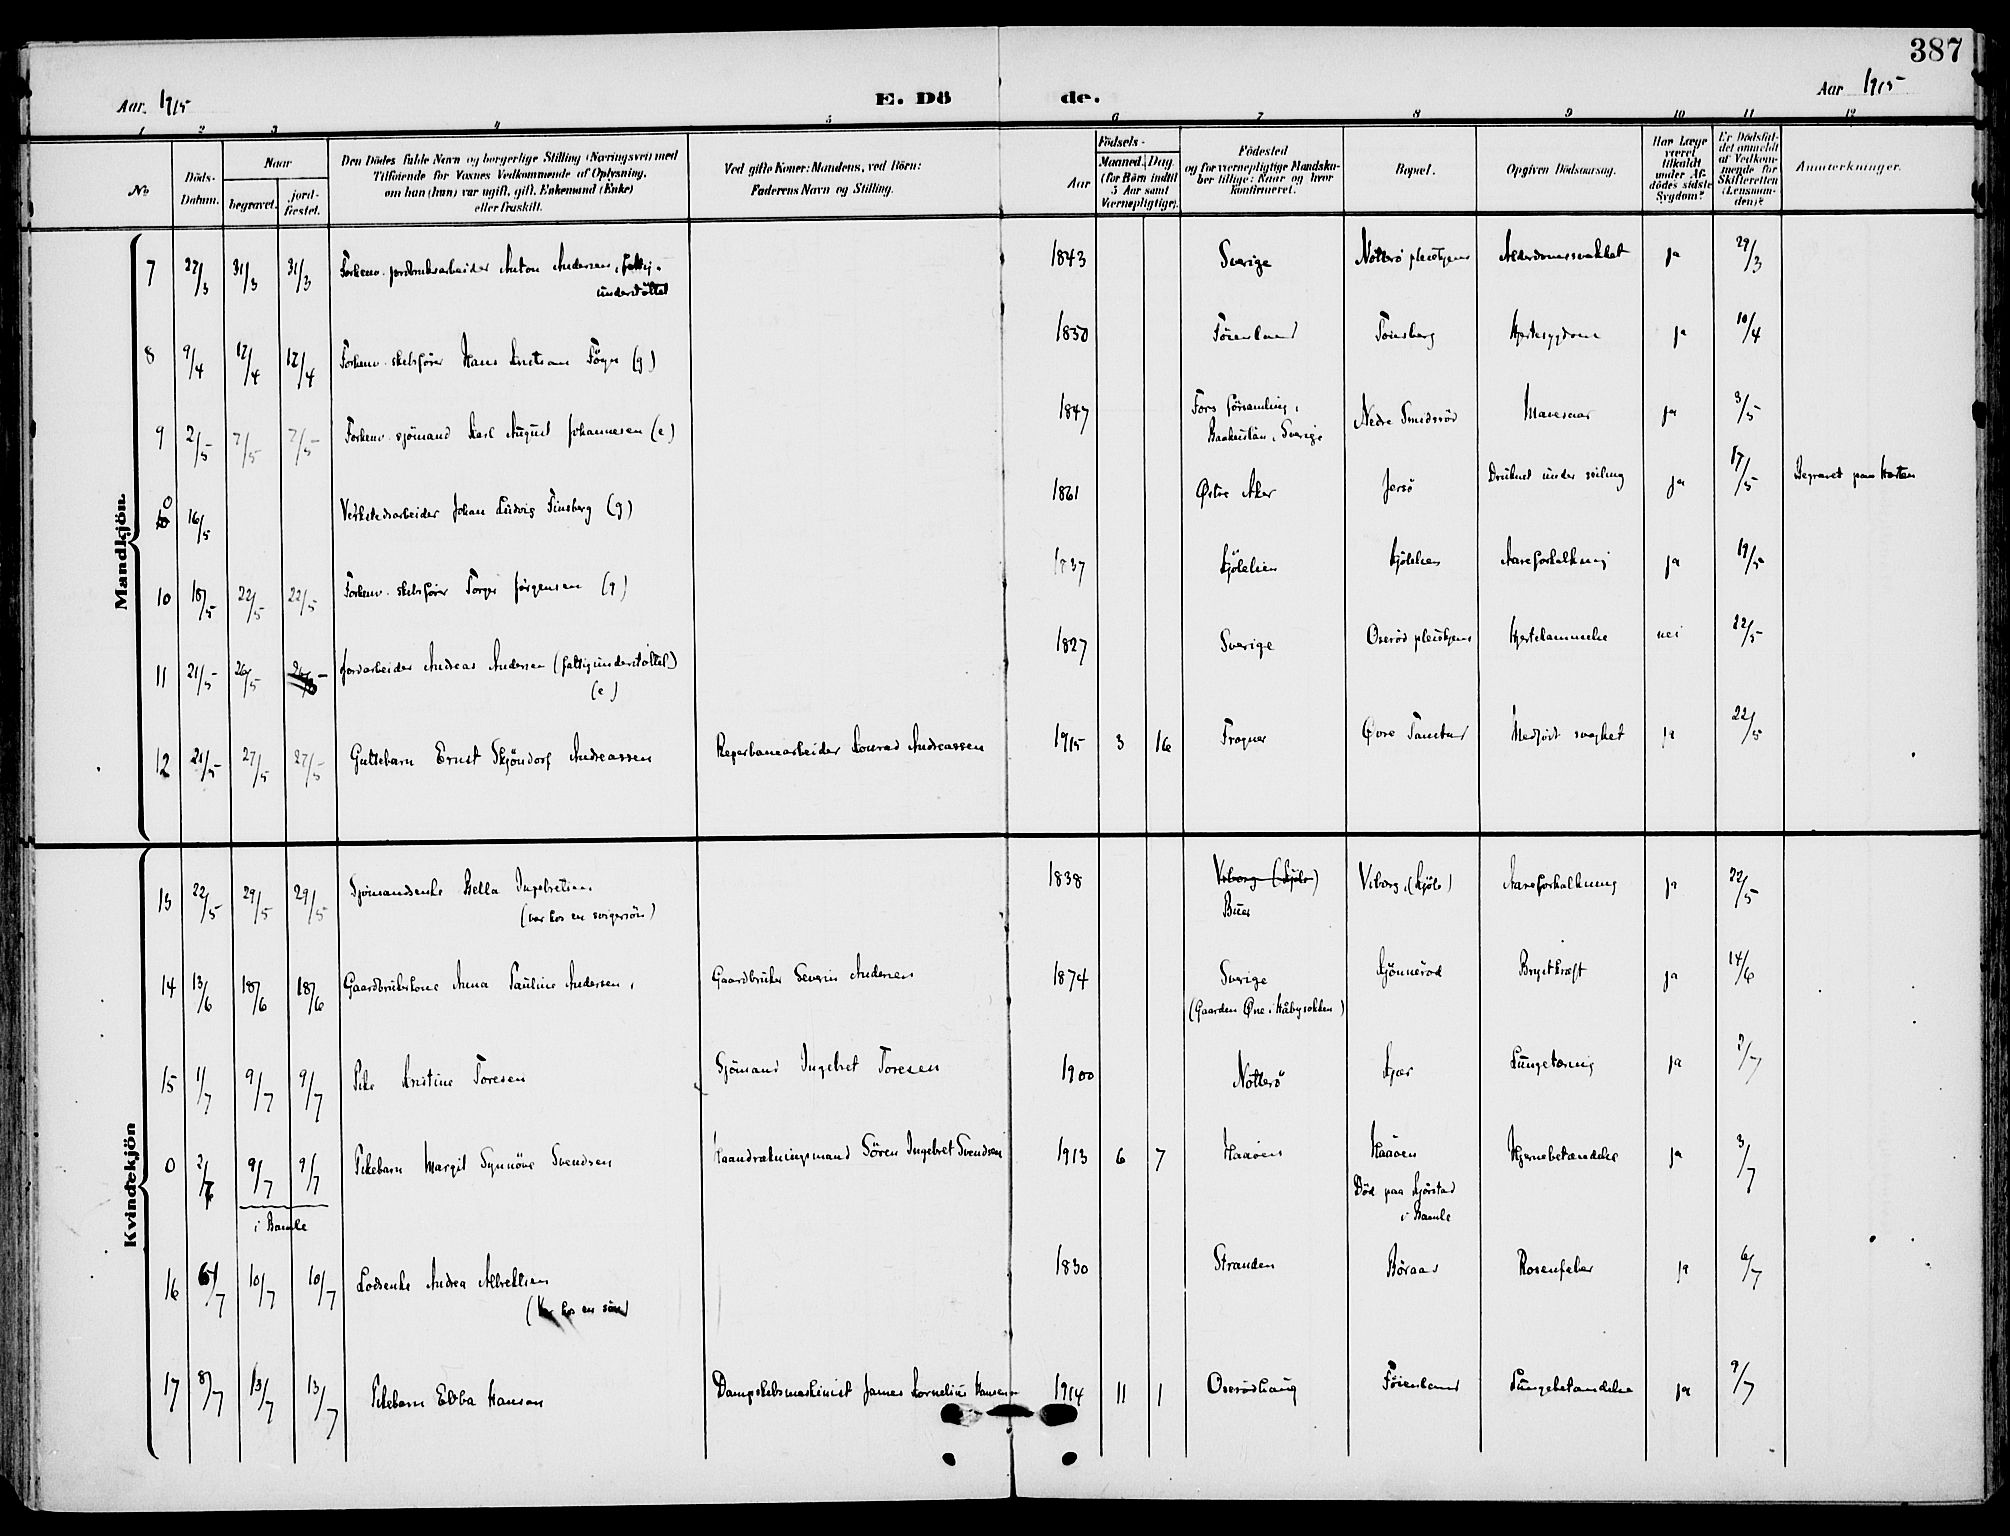 387
Aar 1915
E. Dö
de.
Aar 1915
1 2 3 4 5 6 7 8 9 10 11 12
No
Döds-Datum.
Naar
begravet.
jord-fæstet.
Den Dödes fulde Navn og borgerlige Stilling (Næringsvei) med
Tilföiende for Voxnes Vedkommende af Oplysning,
om han (hun) var ugift, gift, Enkemand (Enke)
eller fraskilt.
Ved gifte Koner: Mandens, ved Börn:
Faderens Navn og Stilling.
Födsels-
Aar
Maaned. Dag.
(for Börn indtil
5 Aar samt
Værnepligtige).
Födested
og for værnepligtige Mandsku-
ber tillige: Naar og hvor
konfirmeret.
Bopæl.
Opgiven Dödsaarsag.
Har Læge
været
tilkaldt
under Af-
dödes sidste
Sygdom?
Er Dödsfal-
det anmeldt
af Vedkom-
mende for
Skifteretten
(Lensman-
den)?
Anmærkninger.
Mandkjön.
7 27/3 31/3 31/3 Forhenv. jordbruksarbeider Anton Andersen, fattig- 1843 Sverige Nötterö pleiehjem Alderdomssvakhet ja 29/3
understöttet
8 9/4 12/4 12/4 Forhenv. skibsförer Hans Kristian (g) 1830 Föienland Tönsberg Hjertesygdom ja 10/4
9 2/5 7/5 7/5 Forhenv. sjömand Karl August Johannesen (e) 1847 Fors församling, Nedre Smidsröd Mavesaar ja 3/5
Sverige
0 16/5 Verkstedsarbeider Johan Ludvig Finsberg (g) 1861 Østre Aker Jersö Druknet under seiling ja 17/5 Begravet paa Horten
10 18/5 22/5 22/5 Forhenv. skibsförer Torger Jörgensen (g) 1837 Kjölelien Kjölelien Aareforkalkning ja 19/5
11 21/5 26/5 Jordarbeider Andreas Andersen (fattigunderstöttet) 1827 Sverige Oseröd pleiehjem Hjertelammelse nei 22/5
(e)
12 21/5 27/5 27/5 Guttebarn Ernst Skjöndorf Andreassen Reperbanearbeider Konrad Andreassen 1915 3 16 Tragner Övre Medfödt svaghet ja 22/5
Kvindekjön
13 22/5 29/5 29/5 Sjömandsenke Bella Ingebretsen 1838 Viborg (Kjöle) Viborg, (Kjöle) Aareforkalkning ja 22/5
(var hos en svigersön) Buer
14 13/6 18/6 18/6 Gaardbrukerkone Anna Pauline Andersen, Gaardbruker Severin Andersen 1874 Sverige Kjönneröd Brystkræft ja 14/6
(Gaarden Öne i Håbysokken)
15 1/7 9/7 9/7 Pike Kristine Toresen Sjömand Ingebret Toresen 1900 Nötterö Kjær Lungetæring ja 2/7
0 2/7 9/7 9/7 Pikebarn Margit Synnöve Svendsen Haandrækningsmand Sören Ingebret Svendsen 1913 6 7 Haaöen Haaöen Hjernebetændelse ja 3/7
i Bamle
Död paa Kjörstad
i Bamle
16 10/7 10/7 Lodsenke Andrea Albrektsen 1830 Stranden Böraas Rosenfeber ja 6/7
(Var hos en sön)
17 8/7 13/7 13/7 Pikebarn Ebba Hansen Dampskibsmaskinist James Kornelius Hansen 1914 11 1 Oserödhaug Föienland Lungebetændelse ja 9/7